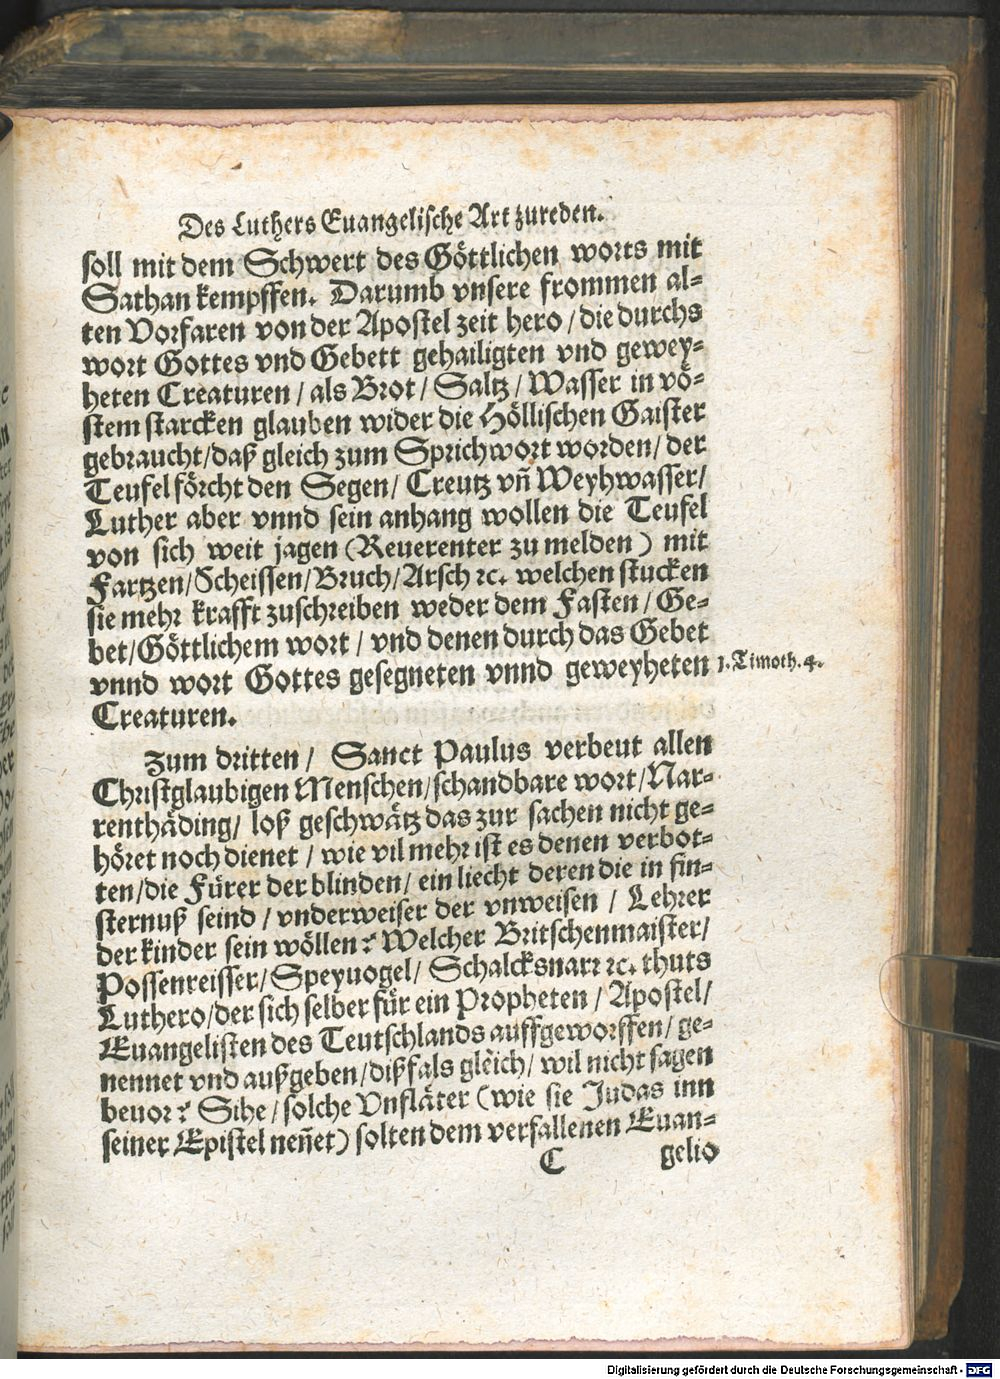 Des Luthers Euangelische Art zureden.
soll mit dem Schwert des Göttlichen worts mit
Sathan kempffen. Darumb vnsere frommen al-
ten Vorfaren von der Apostel zeit hero / die durchs
wort Gottes vnd Gebett gehailigten vnd gewey-
heten Creaturen / als Brot / Saltz / Wasser in vö-
stem starcken glauben wider die Höllischen Gaister
gebraucht / daß gleich zum Sprichwort worden / der
Teufel förcht den Segen / Creutz vñ Weyhwasser /
Luther aber vnnd sein anhang wollen die Teufel
von sich weit jagen (Reuerenter zu melden) mit
Fartzen / Scheissen / Bruch / Arsch ꝛc. welchen stucken
sie mehr krafft zuschreiben weder dem Fasten / Ge-
bet / Göttlichem wort / vnd denen durch das Gebet
vnnd wort Gottes gesegneten vnnd geweyheten
1. Timoth. 4.
Creaturen.
Zum dritten / Sanct Paulus verbeut allen
Christglaubigen Menschen / schandbare wort / Nar-
renthäding / loß geschwätz das zur sachen nicht ge-
höret noch dienet / wie vil mehr ist es denen verbot-
ten / die Fürer der blinden / ein liecht deren die in fin-
sternuß seind / vnderweiser der vnweisen / Lehrer
der kinder sein wöllen? Welcher Britschenmaister /
Possenreisser / Speyuogel / Schalcksnarr ꝛc. thuts
Luthero / der sich selber für ein Propheten / Apostel /
Euangelisten des Teutschlands auffgeworffen / ge-
nennet vnd außgeben / dißfals gleich / wil nicht sagen
beuor? Sihe / solche Vnfläter (wie sie Judas inn
seiner Epistel neñet) solten dem verfallenen Euan-
C gelio
Digitalisierung gefördert durch die Deutsche Forschungsgemeinschaft - DFG